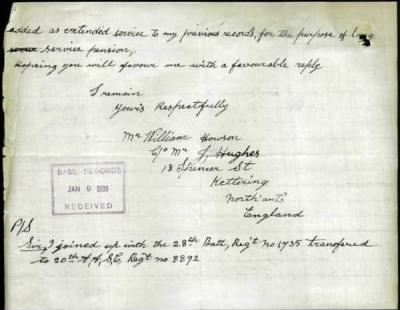 added as extended service to my previous records, for the purpose of long
service pension,
Hopeing you will favour me with a favourable reply
I remain
Yours Respectfully
Mr William Howson
C/o Mr J, Hughes
18 Spencer St
Kettering
North'ants
England
BASE RECORDS
JAN 9
RECEIVED
P/S
Sir, I joined up with the 28th Batt, Reg't no 1735 transfered
to 20th A,A,S,C, Reg't no 8892